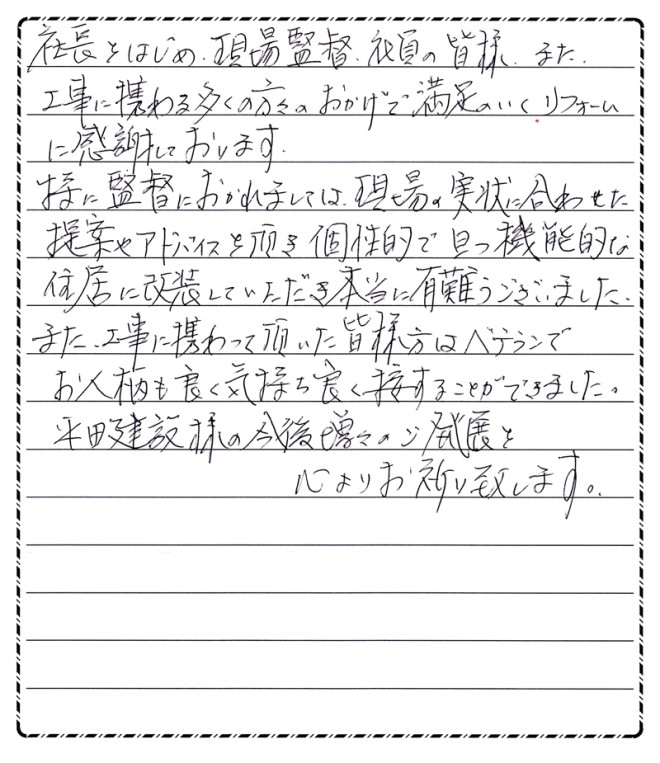 社長をはじめ、現場監督、社員の皆様、また、
工事に携わる多くの方々のおかげで満足のいくリフォーム
に感謝しております。
特に監督におかれましては、現場の実状に合わせた
提案やアドバイスを頂き個性的で且つ機能的な
住居に改装していただき本当に有難うございました。
また、工事に携わって頂いた皆様方はベテランで
お人柄も良く気持ち良く接することができました。
平田建設様の今後増々のご発展を
心よりお祈り致します。